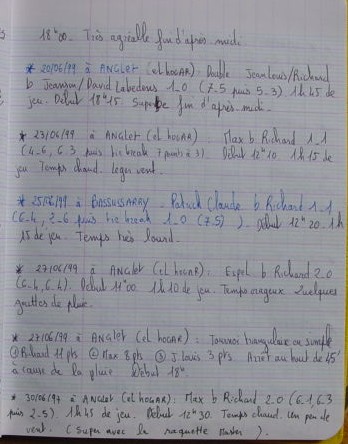 18h00. Très agréable fin d'après-midi.
* 20/06/99 à ANGLET (el hogAR): Double Jean Louis/Richard
b Jeannin/David Labedens 1-0 (7-5 puis 5-3) 1h45 de
jeu. Début 18h15. Superbe fin d'après-midi.
* 23/06/99 à ANGLET (el hogAR) Max b Richard 1-1
(4-6, 6-3 puis tie break 7 points à 3). Début 12h10. 1h15 de
jeu Temps chaud. Léger vent.
* 25/06/99 à BASSUSSARRY. Patrick Claude b Richard 1-1
(6-4, 2-6 puis tie break 1-0 (7-5) ). Début 12h20. 1h
15 de jeu. Temps très lourd.
* 27/06/99 à ANGLET (el hogAR): Espel b Richard 2.0
(6-4, 6-4). Début 11h00 1h10 de jeu. Temps orageux quelques
gouttes de pluie.
* 27/06/99 à ANGLET (el hogAR): Tournoi triangulaire en simple
① Richard 11 pts ② Max 8 pts ③ J. Louis 3 pts. Arrêt au bout de 45'
à cause de la pluie Début 18h.
* 30/06/97 à ANGLET (el hogAR): Max b Richard 2.0 (6-1, 6.3
puis 2-5). 1h45 de jeu. Début 12h30. Temps chaud. Un peu de
vent. (Super avec la raquette Master).